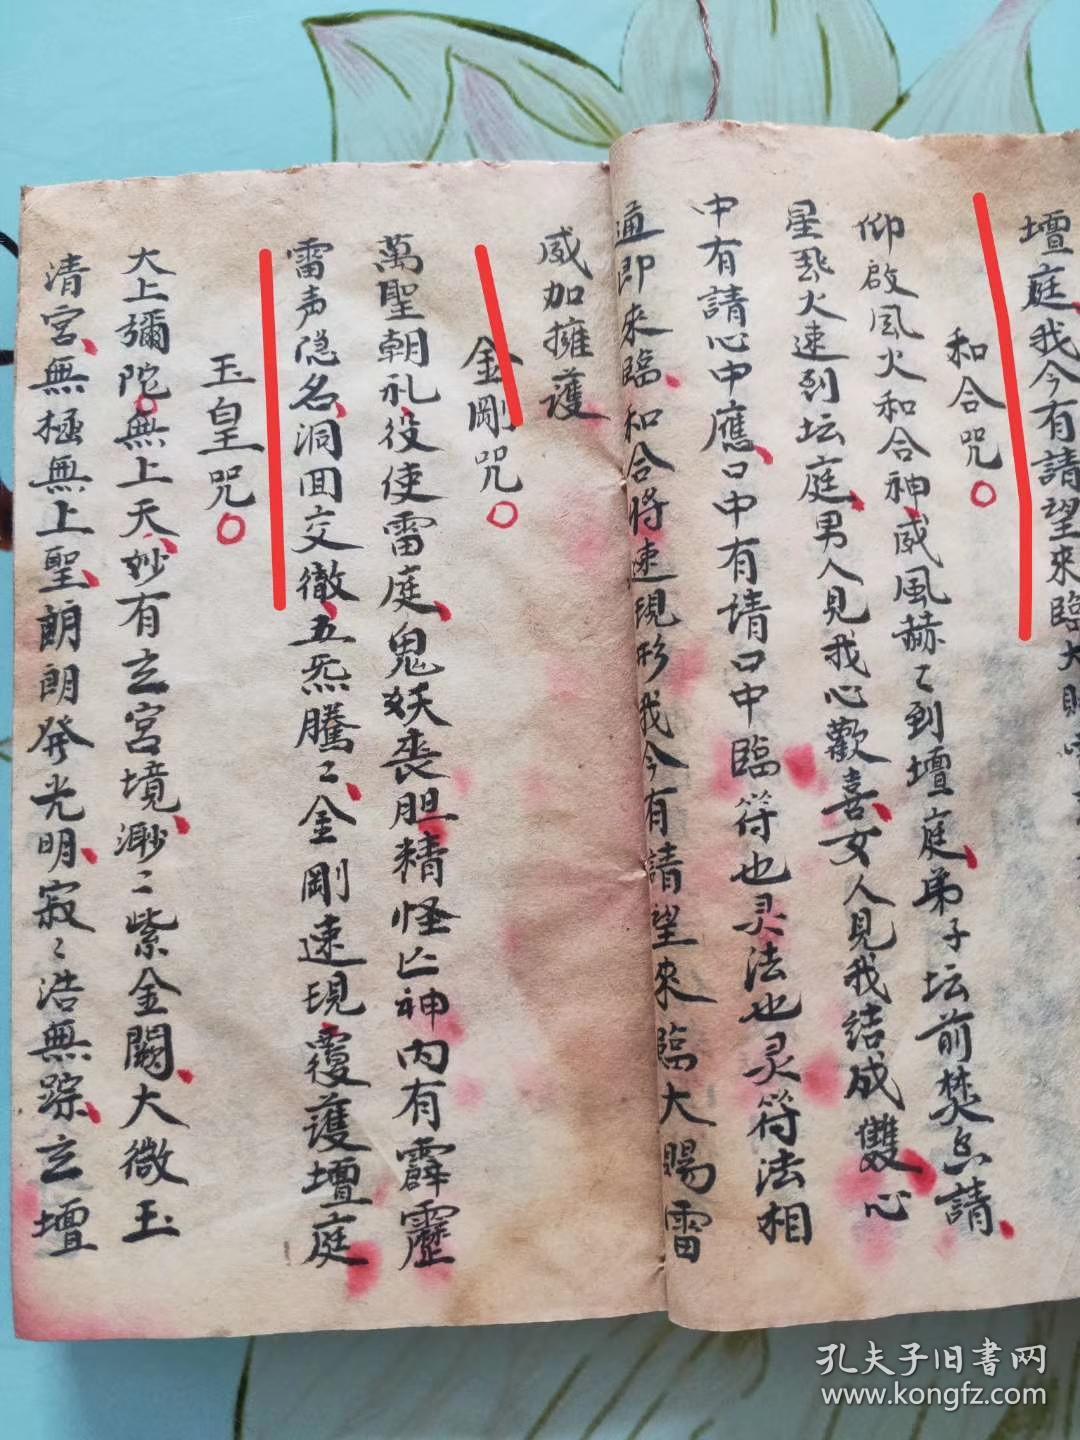 壇庭我今有請望來臨大賜雷
和合咒
仰啟風火和合神威風赫〻到壇庭弟子坛前焚香請
星飛火速到坛庭男人見我心歡喜女人見我结成雙心
中有請心中應口中有请口中臨符也灵法也灵符法相
通即來臨和合將速現形我今有請望來臨大賜雷
威加擁護
金剛咒
萬聖朝礼役使雷庭鬼妖喪胆精怪亡神内有霹靂
雷声隐名洞囬交徹五炁騰〻金剛速現覆護壇庭
玉皇咒
大上彌陀無上天妙有玄宮境渺〻紫金闕大微玉
清宮無極無上聖朗朗發光明寂〻浩無踪玄壇
孔夫子旧書网
www.kongfz.com